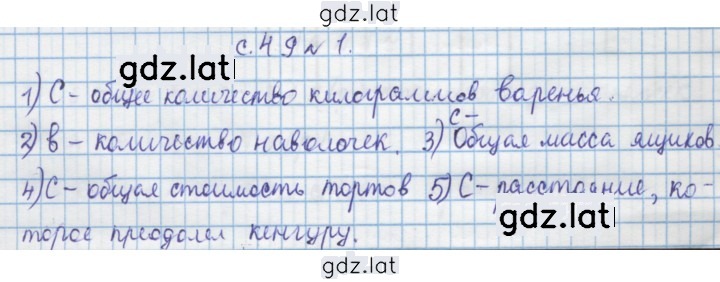 gdz.lat
с. 49 № 1.
gdz.lat
1) С - общее количество килограммов варенья.
2) в - количество наволочек. 3) С - Общая масса ящиков
4) С - общая стоимость тортов 5) С - расстояние, ко-
gdz.lat
торое преодолел кенгуру.
gdz.lat